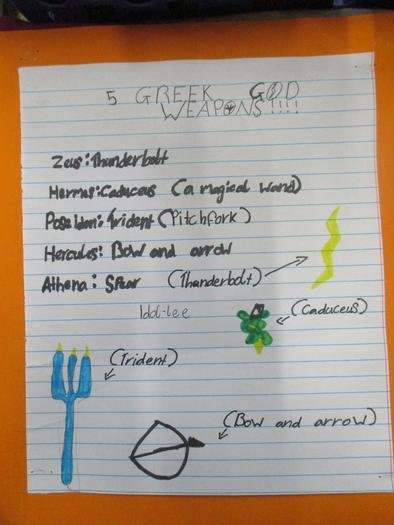 5 GREEK GOD
WEAPONS!!!!
Zeus: Thunderbolt
Hermes: Caduceus (a magical wand)
Poseidon: Trident (Pitchfork)
Hercules: Bow and arrow
Athena: Spear
(Thunderbolt)
(Caduceus)
(Trident)
(Bow and arrow)